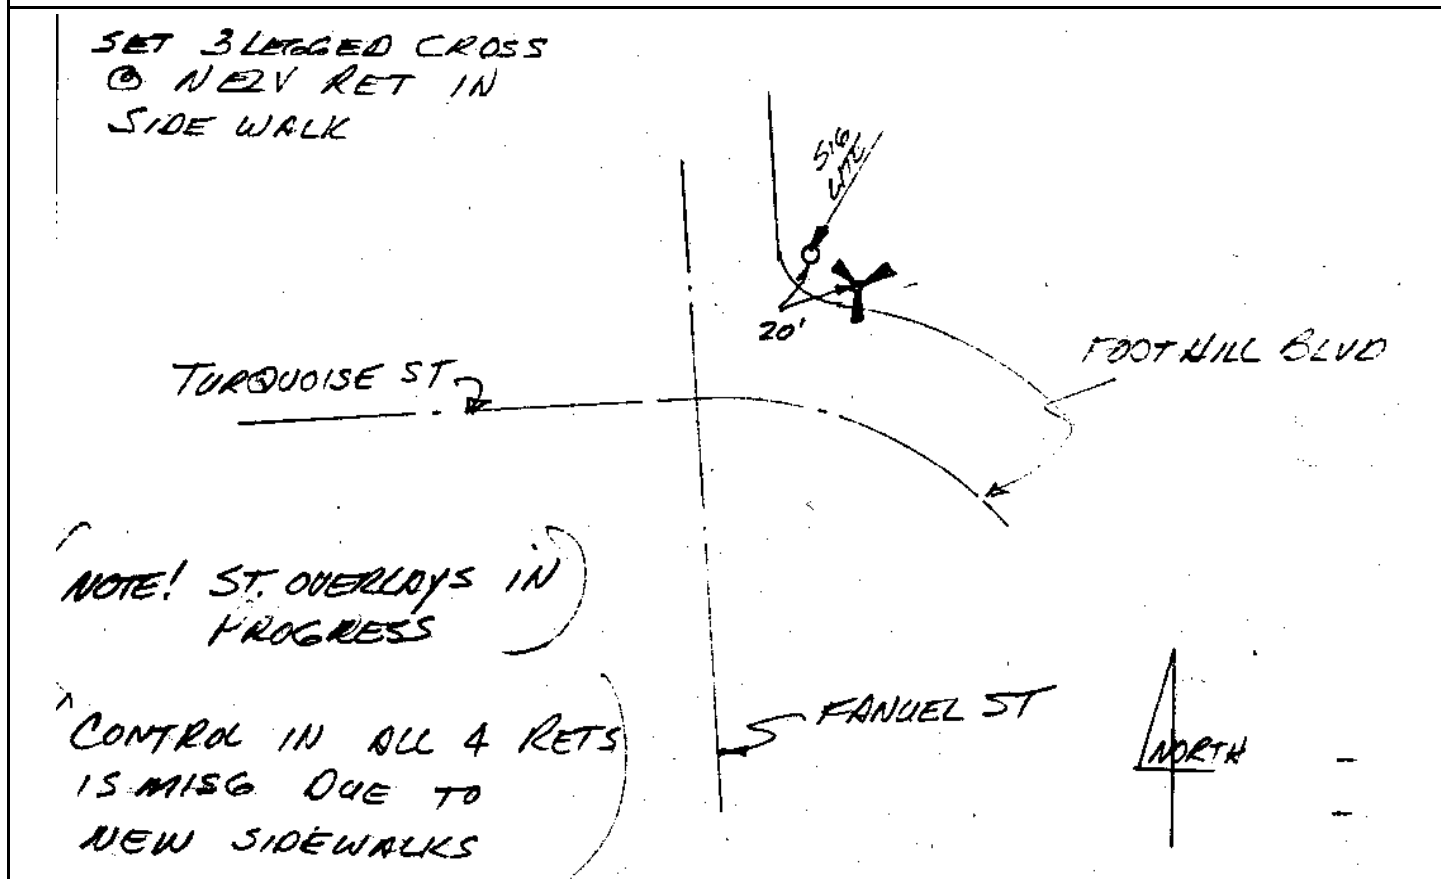 SET 3 LEGGED CROSS
@ NE'LY RET IN
SIDE WALK
SIG
LITE
20'
FOOTHILL BLVD
TURQUOISE ST
NOTE! ST. OVERLAYS IN
PROGRESS
FANUEL ST
CONTROL IN ALL 4 RETS
IS MISG DUE TO
NEW SIDEWALKS
NORTH